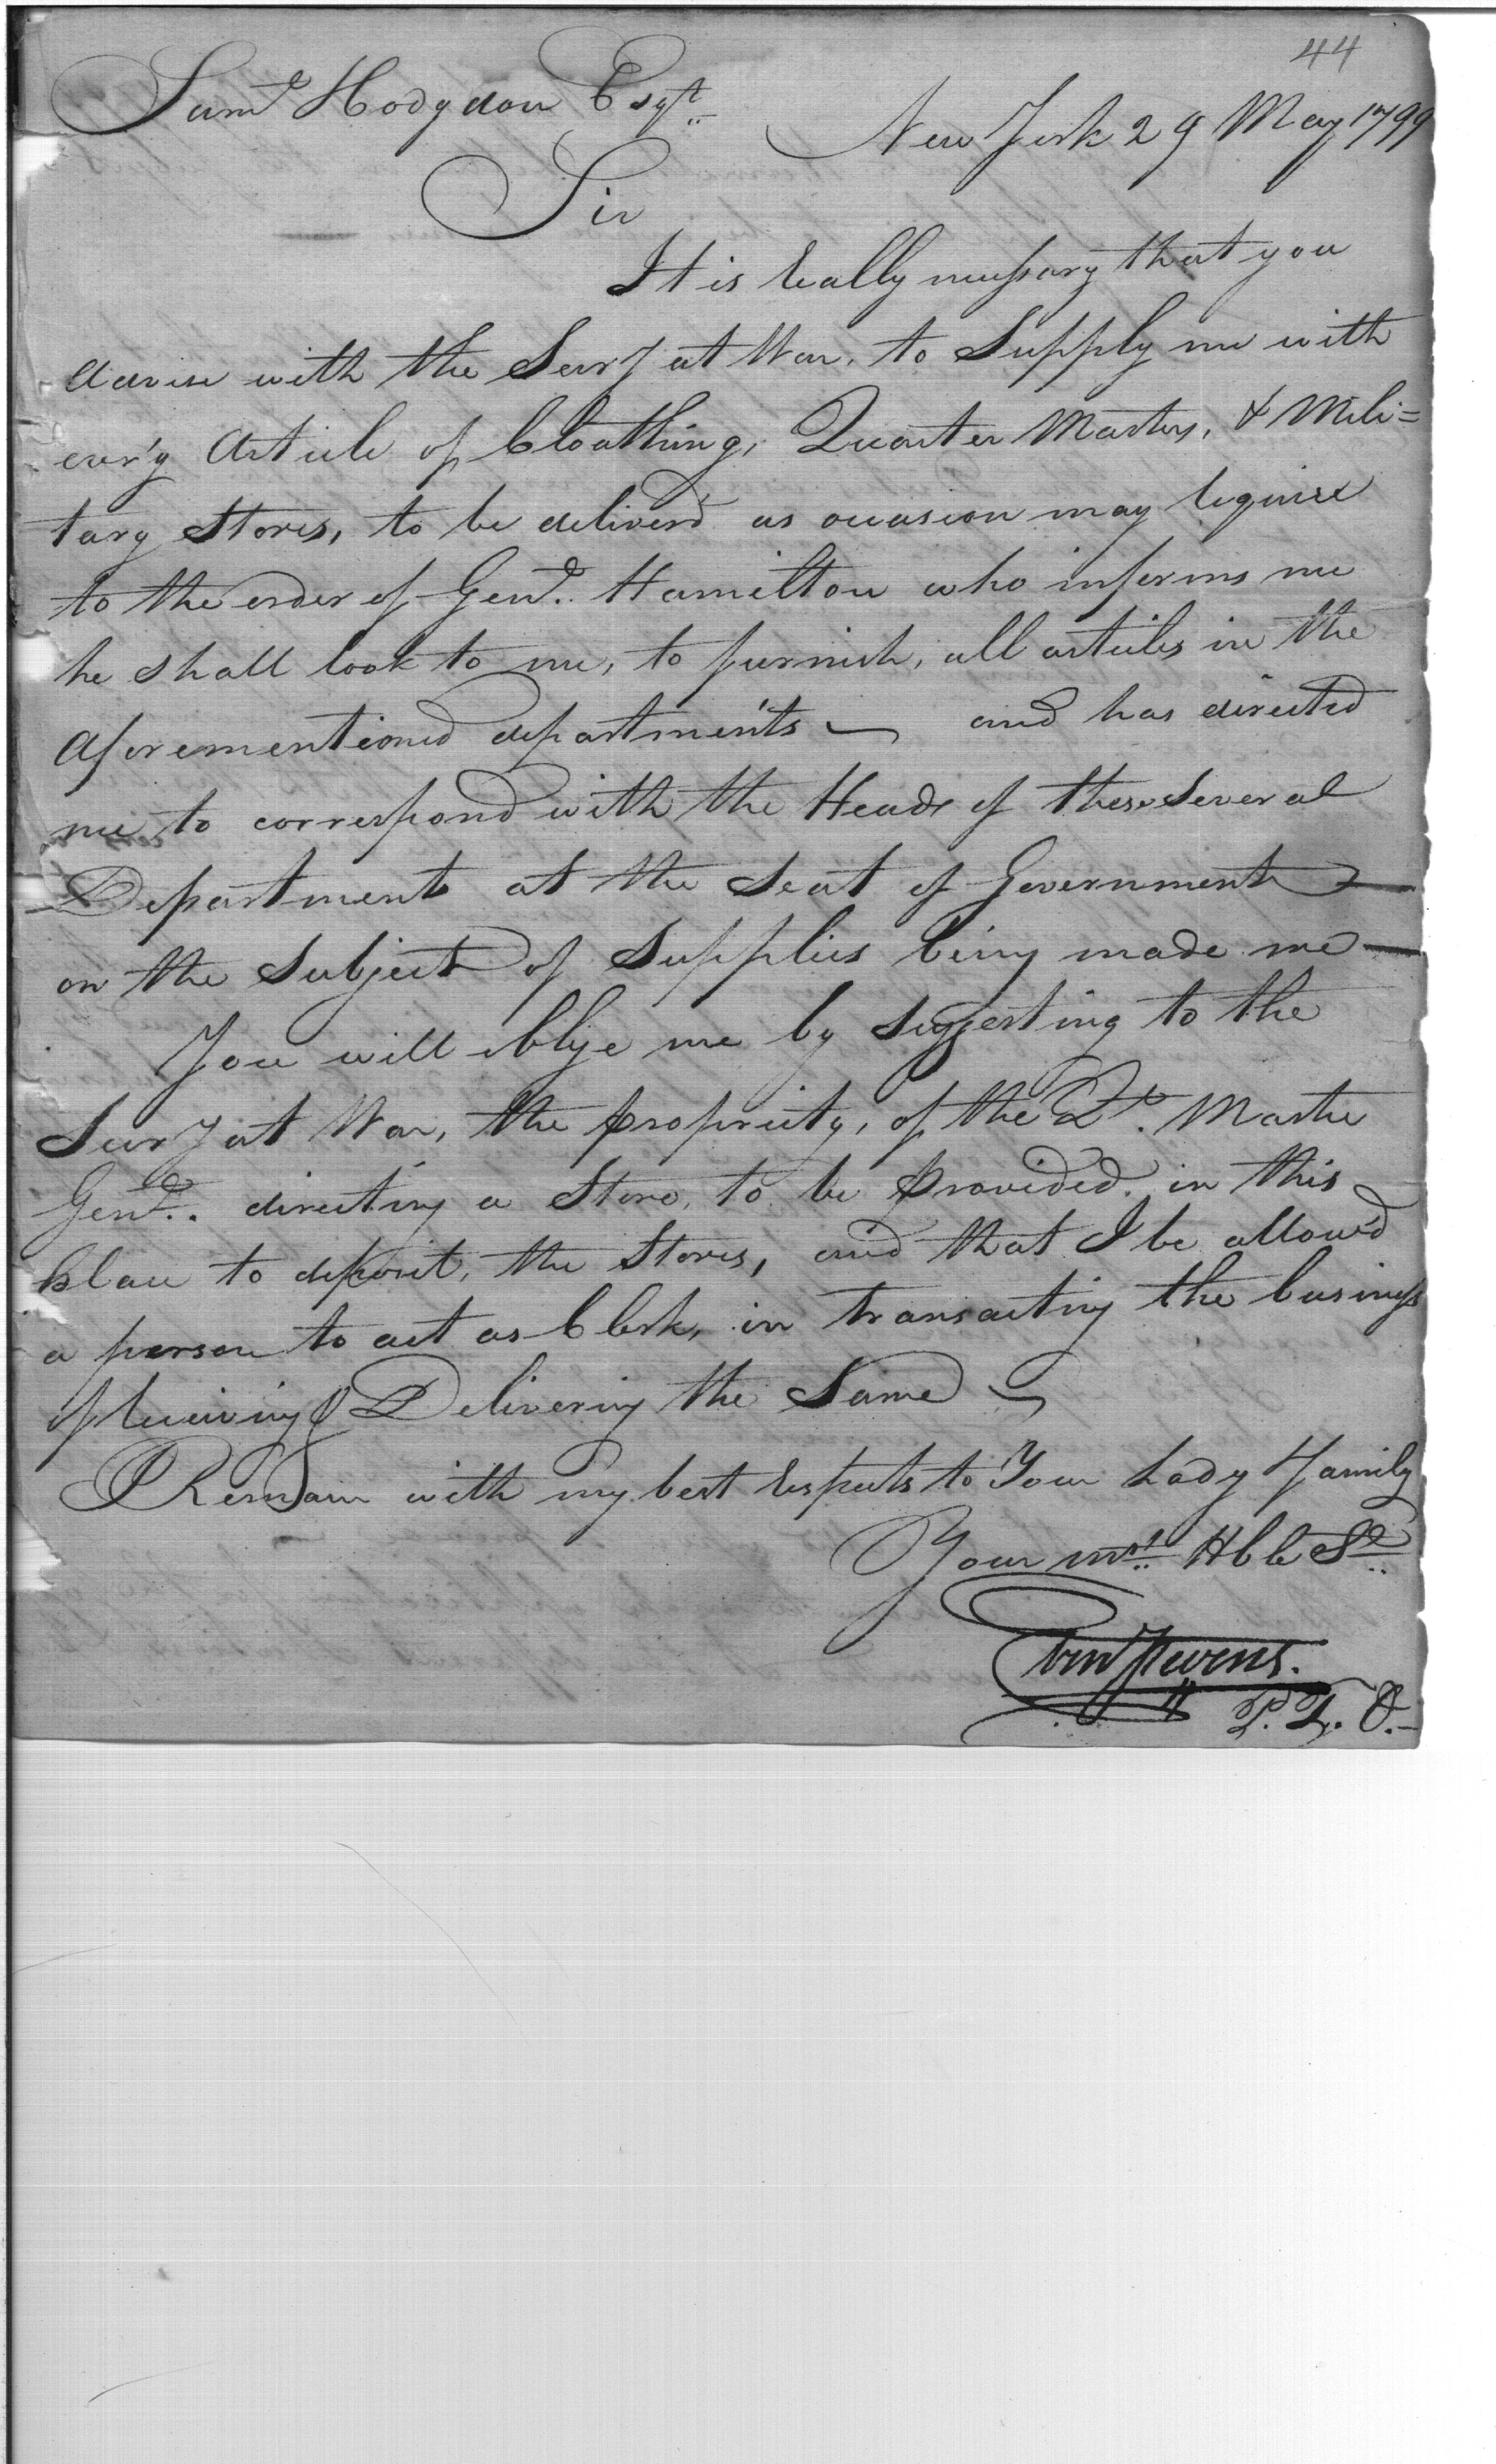 44
Saml Hodgdon Esqr
New York 29 May 1799
Sir
It is really necessary that you
advise with the Secry at War, to Supply me with
every Article of Cloathing, Quarter Masters, & Mili=
tary Stores, to be deliverd as occasion may require
to the order of Genl. Hamilton who informs me
he shall look to me, to furnish, all articles in the
aforementioned departments — and has directed
me to correspond with the Heads of these Several
Departments at the Seat of Government —
on the Subject of Supplies being made me —
You will oblige me by Suggesting to the
Secry at War, the propriety, of the Qr. Master
Genl. directing a Store, to be provided, in this
place to deposit, the Stores, and that I be allow'd
a person to act as Clerk, in transacting the business
of receiving & Delivering the Same —
I Remain with my best respects to Your Lady & family
Your most Hble St
Eben Stevens.
P. T. O. —